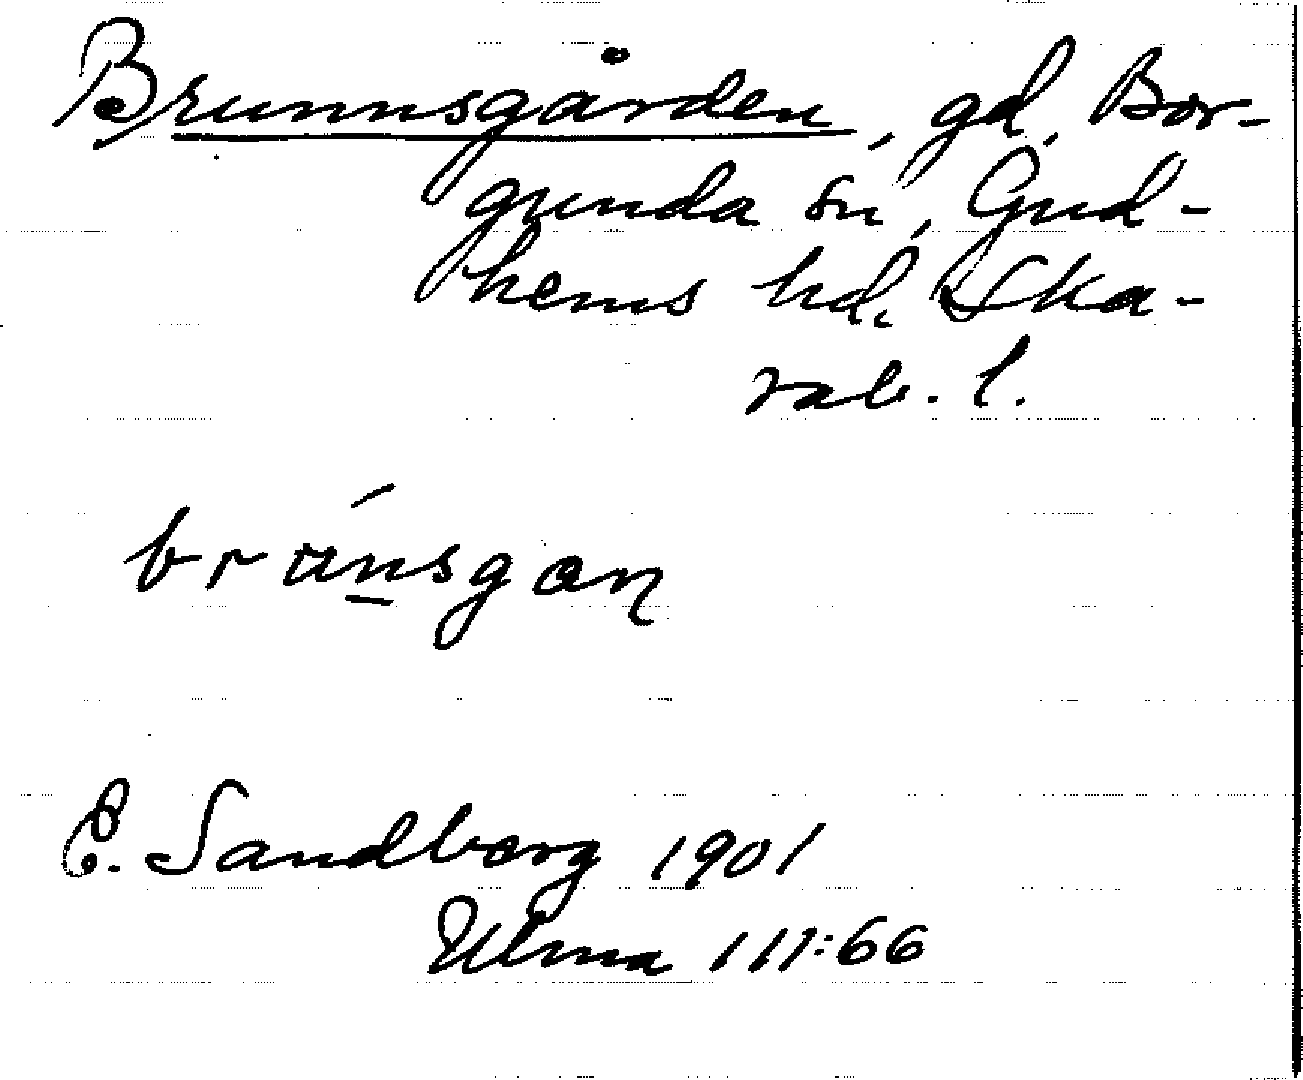 Brunnsgården, gd, Bor-
gunda sn, Gud-
hems hd, Ska-
rab. l.
brúnsgaɳ
E. Sandberg 1901
Ulma 111:66